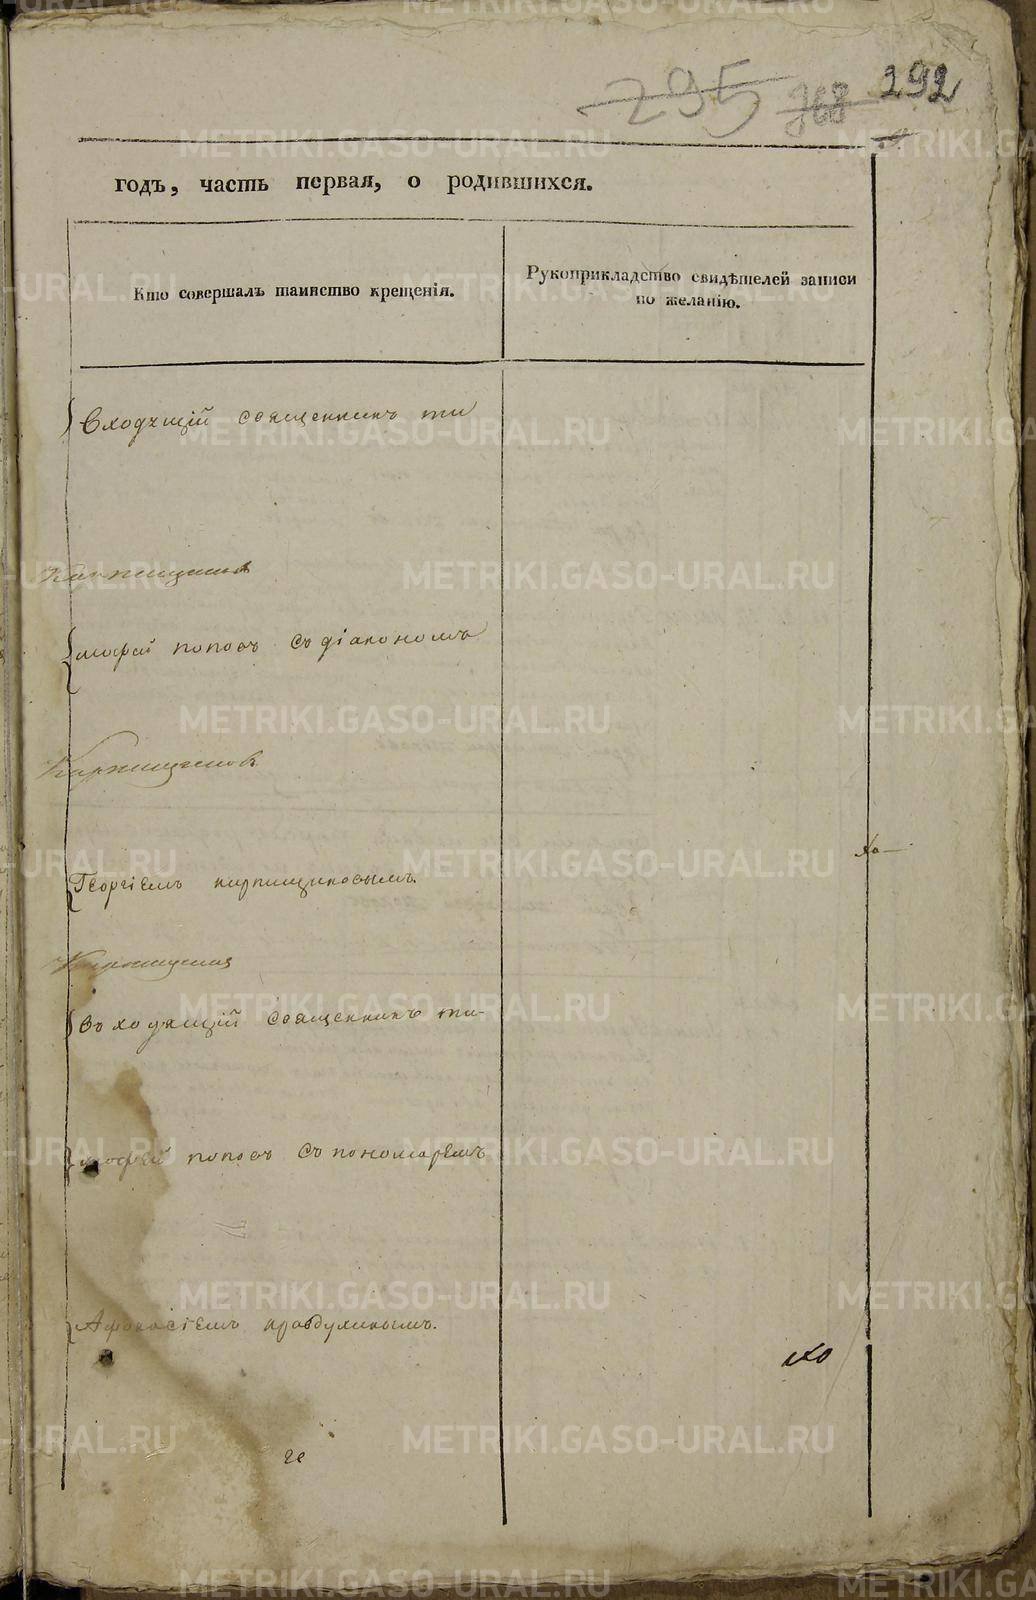 295 368 292
годъ, часть первая, о родившихся.
Кто совершалъ таинство крещенія.
Рукоприкладство свидѣтелей записи
по желанію.
Входящій священникъ ти
мофей поповъ съ діакономъ
Георгіемъ кирпищиковымъ.
Въходящій священникъ ти-
мофей поповъ съ пономаремъ
Афонасіемъ правдухинымъ.
METRIKI.GASO-URAL.RU